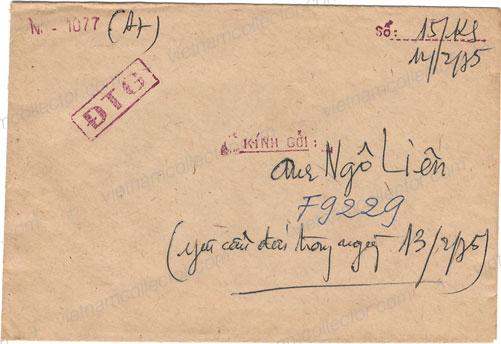 N - 1077 (A+)
Số: 15/KS
12/2/75
ĐTG
KÍNH GỬI:
Ngô Liên
F9229
(yêu cầu đưa trong ngày 13/2/75)
vietnamcollector.com